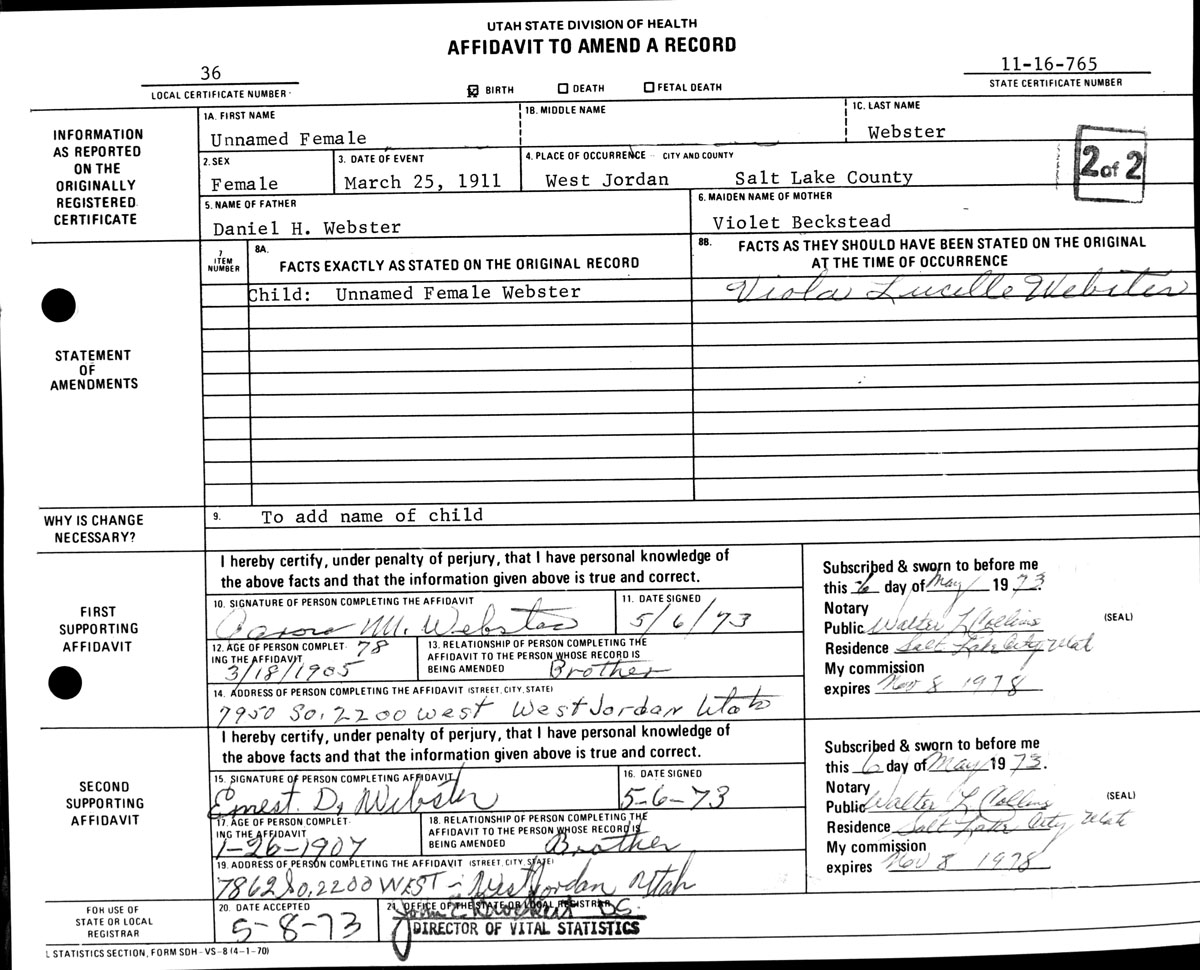 UTAH STATE DIVISION OF HEALTH
AFFIDAVIT TO AMEND A RECORD
36
LOCAL CERTIFICATE NUMBER
☒ BIRTH ☐ DEATH ☐ FETAL DEATH
11-16-765
STATE CERTIFICATE NUMBER
INFORMATION AS REPORTED ON THE ORIGINALLY REGISTERED CERTIFICATE
1A. FIRST NAME 1B. MIDDLE NAME 1C. LAST NAME
Unnamed Female Webster
2. SEX 3. DATE OF EVENT 4. PLACE OF OCCURRENCE -- CITY AND COUNTY
Female March 25, 1911 West Jordan Salt Lake County
2 of 2
5. NAME OF FATHER 6. MAIDEN NAME OF MOTHER
Daniel H. Webster Violet Beckstead
STATEMENT OF AMENDMENTS
7 ITEM NUMBER
8A. FACTS EXACTLY AS STATED ON THE ORIGINAL RECORD
8B. FACTS AS THEY SHOULD HAVE BEEN STATED ON THE ORIGINAL
AT THE TIME OF OCCURRENCE
Child: Unnamed Female Webster Viola Lucille Webster
WHY IS CHANGE NECESSARY?
9. To add name of child
FIRST SUPPORTING AFFIDAVIT
I hereby certify, under penalty of perjury, that I have personal knowledge of
the above facts and that the information given above is true and correct.
10. SIGNATURE OF PERSON COMPLETING THE AFFIDAVIT 11. DATE SIGNED
Aaron M. Webster 5/6/73
12. AGE OF PERSON COMPLETING THE AFFIDAVIT 78
3/18/1905
13. RELATIONSHIP OF PERSON COMPLETING THE
AFFIDAVIT TO THE PERSON WHOSE RECORD IS
BEING AMENDED Brother
14. ADDRESS OF PERSON COMPLETING THE AFFIDAVIT (STREET, CITY, STATE)
7950 So. 2200 West West Jordan Utah
Subscribed & sworn to before me
this 6 day of May 1973.
Notary
Public Walter L Collins (SEAL)
Residence Salt Lake City Utah
My commission
expires Nov 8 1978
SECOND SUPPORTING AFFIDAVIT
I hereby certify, under penalty of perjury, that I have personal knowledge of
the above facts and that the information given above is true and correct.
15. SIGNATURE OF PERSON COMPLETING AFFIDAVIT 16. DATE SIGNED
Ernest. D. Webster 5-6-73
17. AGE OF PERSON COMPLETING THE AFFIDAVIT
1-26-1907
18. RELATIONSHIP OF PERSON COMPLETING THE
AFFIDAVIT TO THE PERSON WHOSE RECORD IS
BEING AMENDED Brother
19. ADDRESS OF PERSON COMPLETING THE AFFIDAVIT (STREET, CITY, STATE)
7862 So. 2200 WEST - West Jordan Utah
Subscribed & sworn to before me
this 6 day of May 1973.
Notary
Public Walter L Collins (SEAL)
Residence Salt Lake City Utah
My commission
expires Nov 8 1978
FOR USE OF STATE OR LOCAL REGISTRAR
20. DATE ACCEPTED 21. OFFICE OF THE STATE OR LOCAL REGISTRAR
5-8-73
DIRECTOR OF VITAL STATISTICS
L STATISTICS SECTION, FORM SDH-VS-8 (4-1-70)